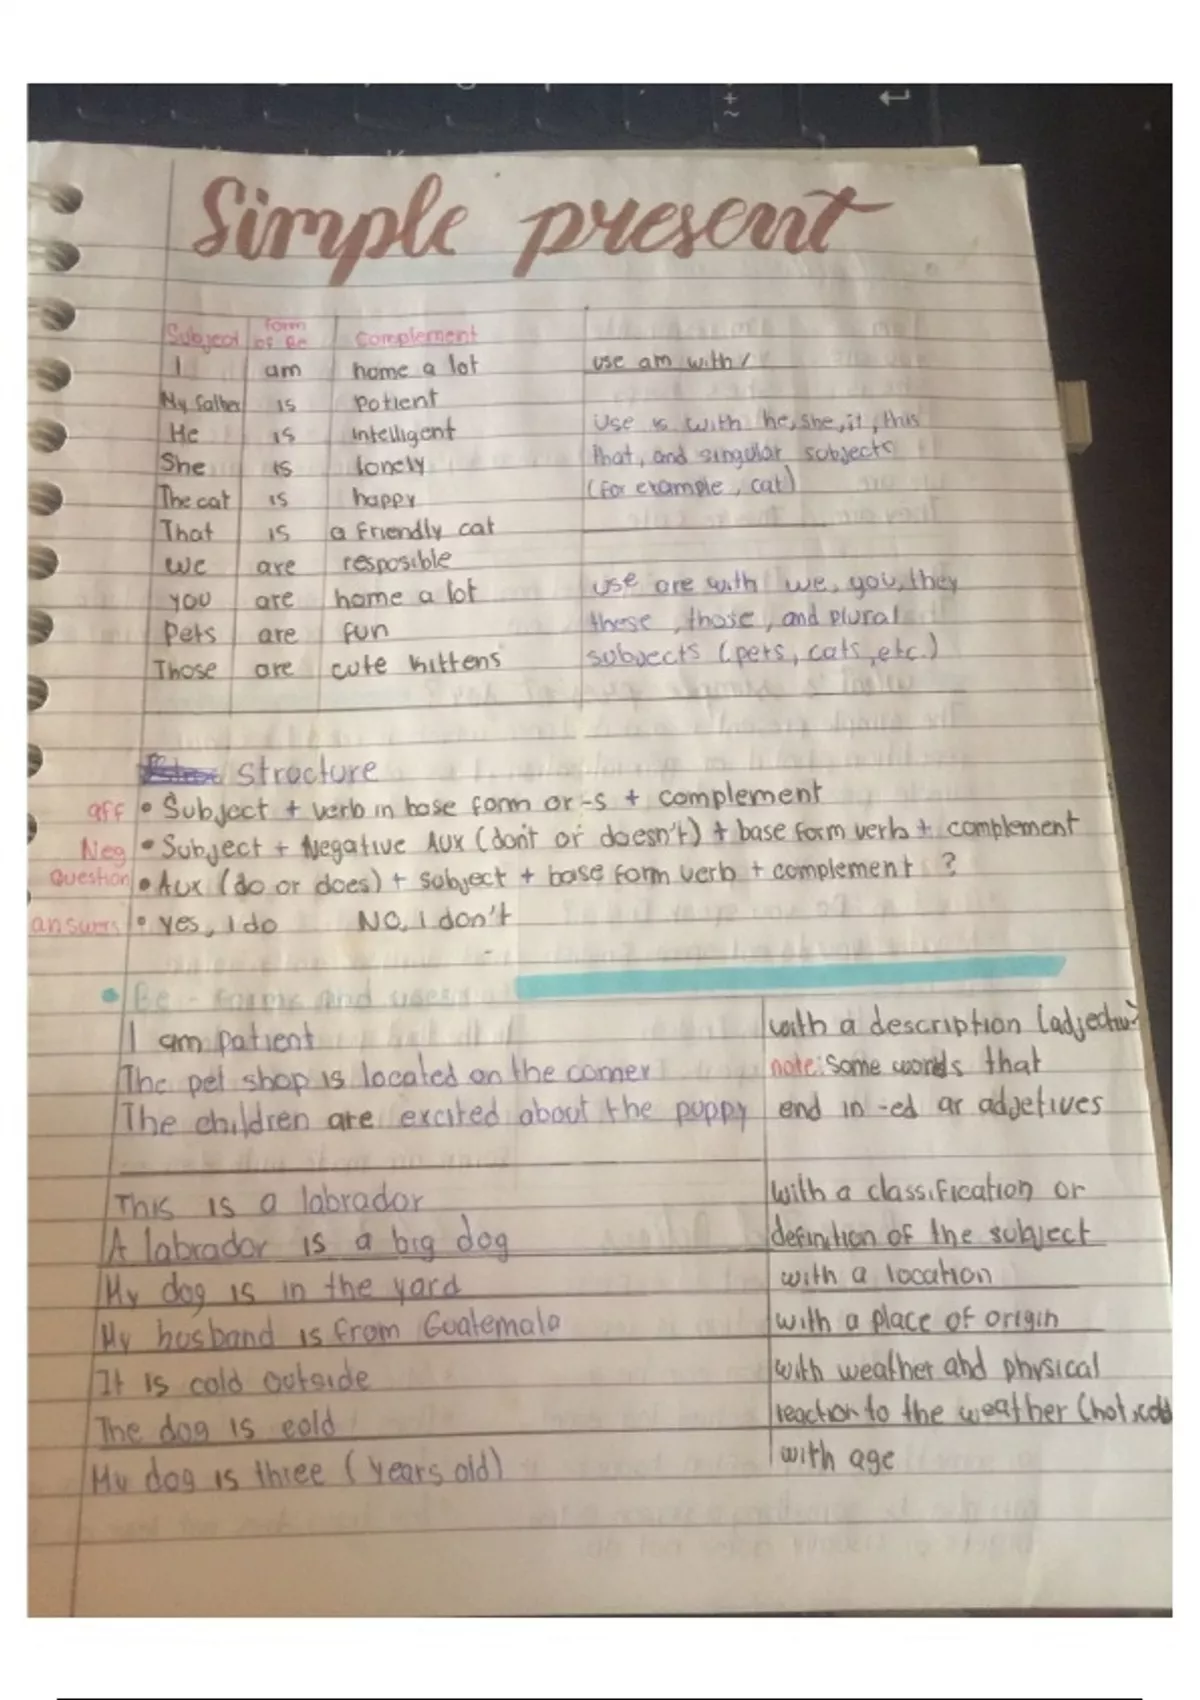 Simple present
Subject form of Be complement
I am home a lot use am with I
My father is patient
He is intelligent Use is with he, she, it, this
She is lonely that, and singular subjects
The cat is happy (for example, cat)
That is a friendly cat
we are resposible
you are home a lot use are with we, you, they
Pets are fun these, those, and plural
Those are cute kittens subjects (pets, cats, etc.)
structure
aff • Subject + verb in base form or -s + complement
Neg • Subject + Negative Aux (don't or doesn't) + base form verb + complement
Question • Aux (do or does) + subject + base form verb + complement ?
answers • yes, I do NO, I don't
• Be - forms and uses
I am patient with a description (adjective)
The pet shop is located on the corner note: Some words that
The children are excited about the puppy end in -ed ar adjetives
This is a labrador with a classification or
A labrador is a big dog definition of the subject
My dog is in the yard with a location
My husband is from Guatemala with a place of origin
It is cold outside with weather and physical
The dog is cold reaction to the weather (hot, cold
My dog is three (years old) with age